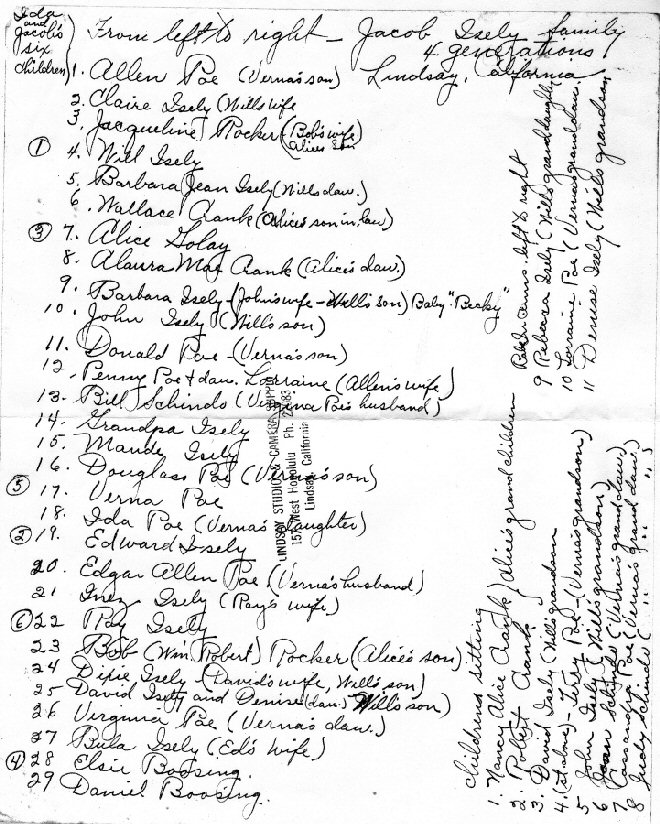 Ida
and
Jacob's
six
children
From left to right - Jacob Isely family
4 generations
Lindsay, California
1. Allen Poe (Verna's son)
2. Claire Isely (Will's wife
3. Jacqueline Rocker (Bob's wife)
(Alice's son
① 4. Will Isely
5. Barbara Jean Isely (Will's dau.)
6. Wallace Crank (Alice's son in law)
③ 7. Alice Golay
8. Alaura Mae Crank (Alice's dau.)
9. Barbara Isely (John's wife - Will's son) Baby "Becky"
10. John Isely (Will's son)
11. Donald Poe (Verna's son)
12. Penny Poe & dau. Lorraine (Allen's wife)
13. Bill Schindo (Virginia Poe's husband)
14. Grandpa Isely
15. Maude Isely
16. Douglass Poe (Verna's son)
⑤ 17. Verna Poe
18. Ida Poe (Verna's daughter)
② 19. Edward Isely
20. Edgar Allen Poe (Verna's husband)
21 Inez Isely (Ray's wife)
⑥ 22 Ray Isely
23 Bob (Wm Robert) Rocker (Alice's son)
24 Dixie Isely - David's wife, Will's son)
25 David Isely and Denise (dau) Will's son)
26 Virginia Poe (Verna's dau.)
27 Bula Isely (Ed's wife)
④ 28 Elsie Boosing.
29 Daniel Boosing.
LINDSAY STUDIO & CAMERA SHOP
157 West Honolulu Ph.
Lindsay, California
Babe in arms left to right
9 Rebecca Isely (Will's granddaughter)
10 Lorraine Poe (Verna's grand dau.
11 Denise Isely (Will's grandson)
children sitting
1. Nancy Alice Crank (Alice's grand children
2. Robert Crank
3. David Isely (Will's grandson
4. (st above) - Terry Poe - (Verna's grandson)
5 John Isely (Will's grandson)
6 Jean Schindo (Verna's grand dau.)
7 Cassandra Poe (Verna's grand dau.)
8 Judy Schindo ( " " " )